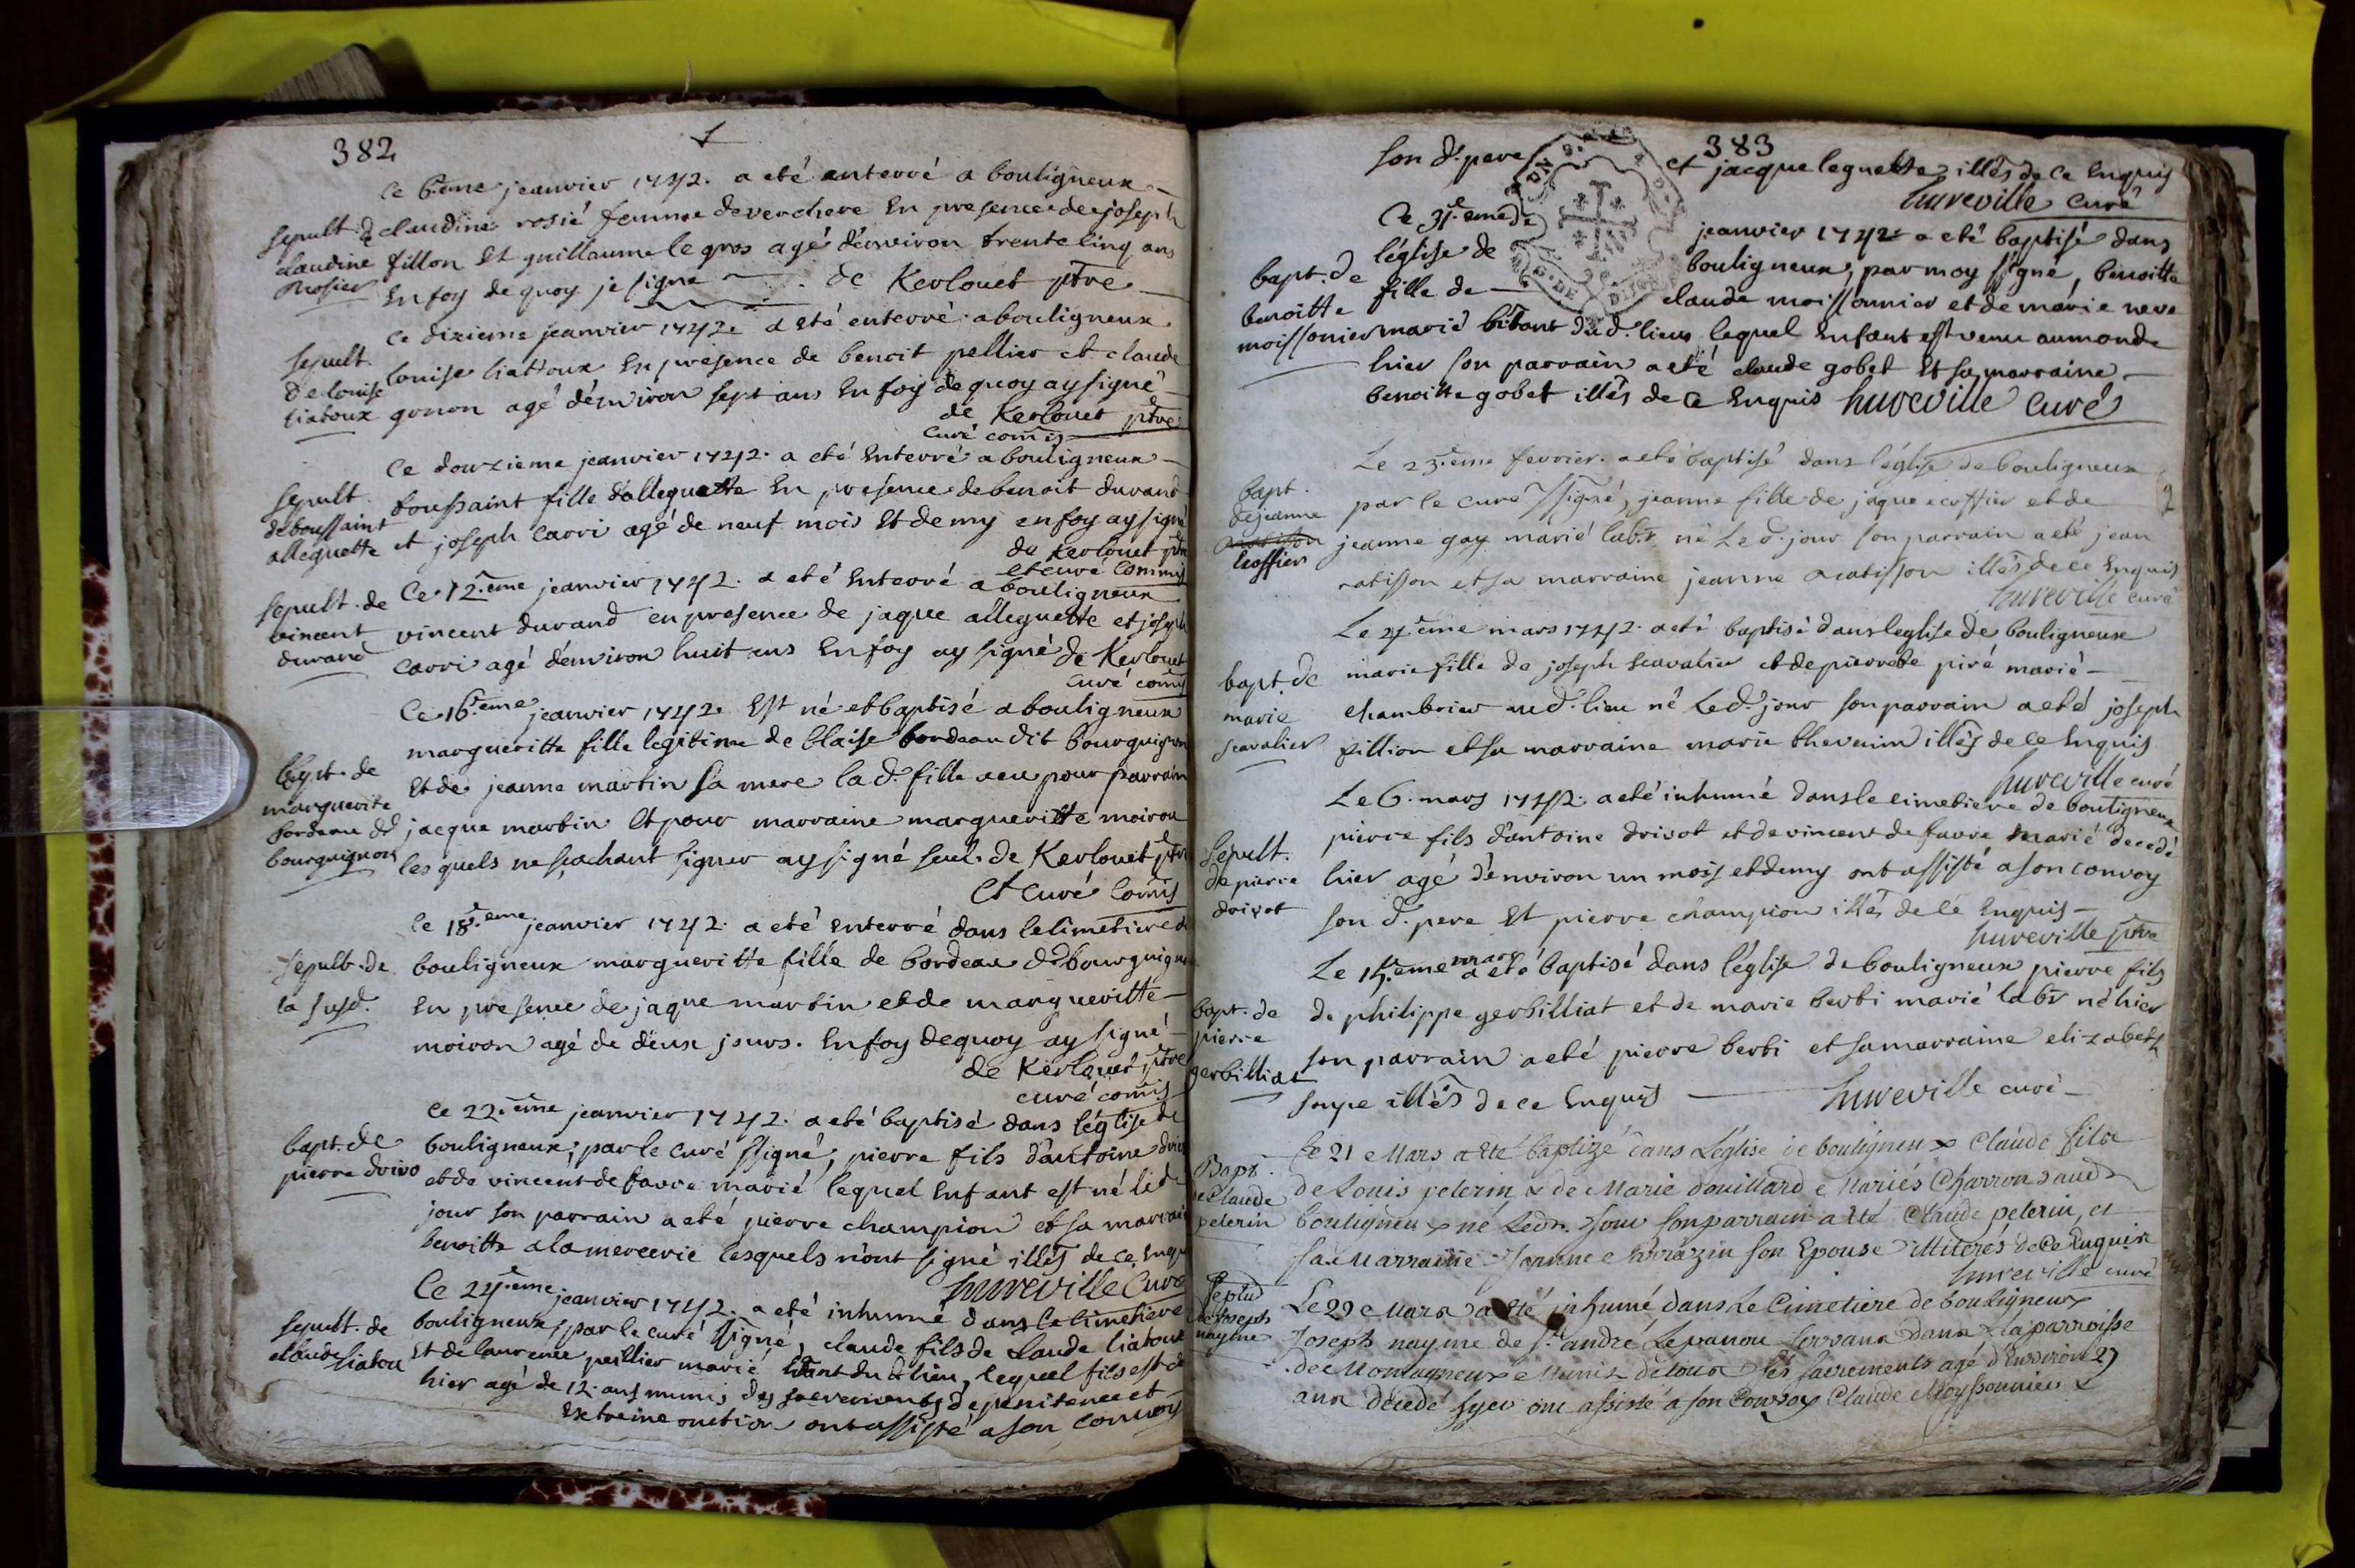 382
1
Ce 6.ème jeanvier 1742. a eté enterré a bouligneux
sepult. de claudine rosié femme de verchere En presence de joseph
claudine fillon Et guillaume le gros agé d'environ trente cinq ans
rosier En foy de quoy je signe de Kerlouet ptre
Ce dixieme jeanvier 1742. a eté enterré a bouligneux
sepult. louise liattoux En presence de benoit pellier et claude
de louise gonon agé d'environ sept ans En foy de quoy ay signé
liatoux de Kerlouet ptre
curé comis
Ce douzieme jeanvier 1742. a eté Enterré a bouligneux
sepult. toussaint fille d'alleguette En presence de benoit durand
de toussaint et joseph Carri agé de neuf mois Et demy en foy ay signé
alleguette de Kerlouet ptre
et curé Commis
sepult. de Ce 12.ème jeanvier 1742. a eté Enterré a bouligneux
vincent vincent durand en presence de jaque alleguette et joseph
durand Carri agé d'environ huit ans En foy ay signé de Kerlouet
curé comis
Ce 16.ème jeanvier 1742. Est né et baptisé a bouligneux
margueritte fille legitime de blaise bordeau dit bourguignon
bapt. de Et de jeanne martin sa mere la d. fille a eu pour parrain
marguerite jacque martin Et pour marraine margueritte moiron
bordeau dt les quels ne sçachant signer ay signé seul. de Kerlouet ptre
bourguignon Et Curé Comis
le 18.ème jeanvier 1742. a eté enterré dans le cimetiere de
sepult. de bouligneux margueritte fille de bordeau dt bourguignon
la susd. En presence de jaque martin et de margueritte
moiron agé de deux jours. En foy de quoy ay signé
de Kerlouet ptre
curé comis
Ce 22.ème jeanvier 1742. a eté baptisé dans l'église de
bapt. de bouligneux; par le curé ssigné, pierre fils d'antoine drivo
pierre drivo et de vincent de favre marié lequel Enfant est né le d.
jour son parrain a eté pierre champion et sa marraine
benoitte alamercerie lesquels n'ont signé illés de ce Enquis
hureville Curé
Ce 24.ème jeanvier 1742. a eté inhumé dans le cimetiere
sepult. de bouligneux, par le curé ssigné, claude fils de Claude liatoux
claude liatou Et de laurence peillier marié bitant du d. lieu, lequel fils est dcd
hier agé de 12. ans munis des sacrements de penitence et
Extreme onction ont assisté a son convoy
383
son d. pere et jacque leguette illés de ce Enquis
hureville curé
Ce 31.ème de jeanvier 1742 a eté baptisé dans
l'église de bouligneux, par moy ssigné, benoitte
bapt. de fille de claude moissonnier et de marie neve
benoitte
moissonier marié bitant du d. lieu lequel Enfant est venu au monde
hier son parrain a eté claude gobet Et sa marraine
benoitte gobet illés de ce Enquis hureville Curé
Le 23.ème fevrier. a eté baptisé dans l'église de bouligneux
bapt. par le curé ssigné, jeanne fille de jaque ecoffier et de
de jeanne jeanne gay marié labr. né Le d. jour son parrain a eté jean
Ecoffier ratisson et sa marraine jeanne ratisson illés de ce Enquis
hureville curé
2
Le 4.ème mars 1742. a eté baptisé dans l'eglise de bouligneux
bapt. de marie fille de joseph scavalier et de pierrette piré marié
marie chambrier au d. lieu né Le d. jour son parrain a eté joseph
scavalier fillion et sa marraine marie thevenin illés de ce Enquis
hureville curé
Le 6. mars 1742. a eté inhumé dans le cimetiere de bouligneux
pierre fils d'antoine drivot et de vincent de favre marié decedé
sepult. hier agé d'environ un mois et demy ont assisté a son convoy
de pierre
drivot son d. pere Et pierre champion illés de ce Enquis
hureville ptre
Le 15.ème mars a eté baptisé dans l'église de bouligneux pierre fils
bapt. de de philippe gerbilliat et de marie berti marié labr né hier
pierre son parrain a eté pierre berti et sa marraine elizabeth
gerbilliat soupe illés de ce Enquis hureville curé
Ce 21 Mars a Eté baptizé dans L'église de bouligneux Claude fils
Bapt. de Louis pelerin & de Marie douillard Mariés Charron aud.
de Claude
pelerin bouligneux né Ledt. Jour son parrain a Eté Claude pelerin, et
sa Marraine Jeanne Sarrazin son Epouse illiterés de Ce Enquis
hureville curé
Sepult Le 29 Mars a Eté inhumé dans Le Cimetiere de bouligneux
de Joseph Joseph nayme de St. andré Lepanou servant dans la parroisse
nayme de Montagneux Munis de tous les sacrements agé d'Environ 27
ans decedé hyer ont assisté a son Convoy Claude Moyssonnier &